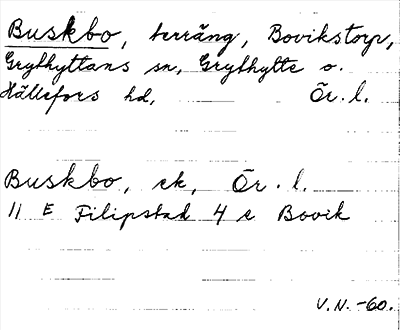 Buskbo, terräng, Bovikstorp,
Grythyttans sn, Grythytte o.
Hällefors hd, Ör. l.
Buskbo, ek, Ör. l.
11 E Filipstad 4 e Bovik
V.N. -60.